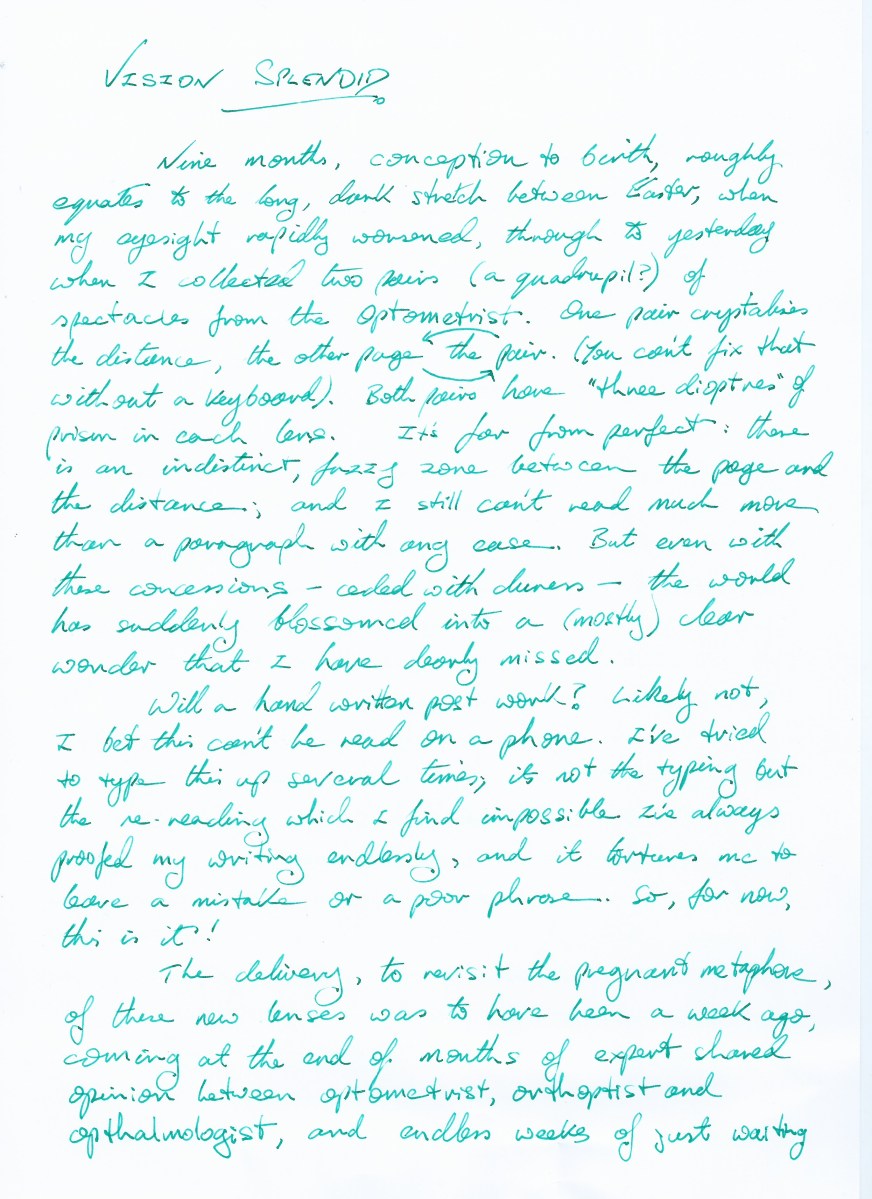 VISION SPLENDID
Nine months, conception to birth, roughly
equates to the long, dark stretch between Easter, when
my eyesight rapidly worsened, through to yesterday
when I collected two pairs (a quadrupil?) of
spectacles from the Optometrist. One pair crystalises
the distance, the other page the pair. (You can't fix that
without a keyboard). Both pairs have "three dioptres" of
prism in each lens. It's far from perfect: there
is an indistinct, fuzzy zone between the page and
the distance; and I still can't read much more
than a paragraph with any ease. But even with
these concessions - ceded with - the world
has suddenly blossomed into a (mostly) clear
wonder that I have dearly missed.
Will a hand written post work? Likely not,
I bet this can't be read on a phone. I've tried
to type this up several times; it's not the typing but
the re-reading which I find impossible I've always
proofed my writing endlessly, and it tortures me to
leave a mistake or a poor phrase. So, for now,
this is it!
The delivery, to revisit the pregnant metaphore,
of these new lenses was to have been a week ago,
coming at the end of months of expert shared
opinion between optometrist, orthoptist and
opthalmologist, and endless weeks of just waiting